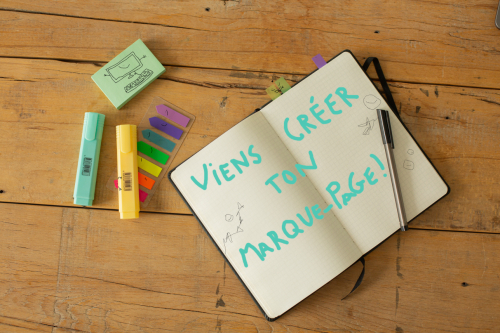 VIENS CRÉER
TON
MARQUE-PAGE!